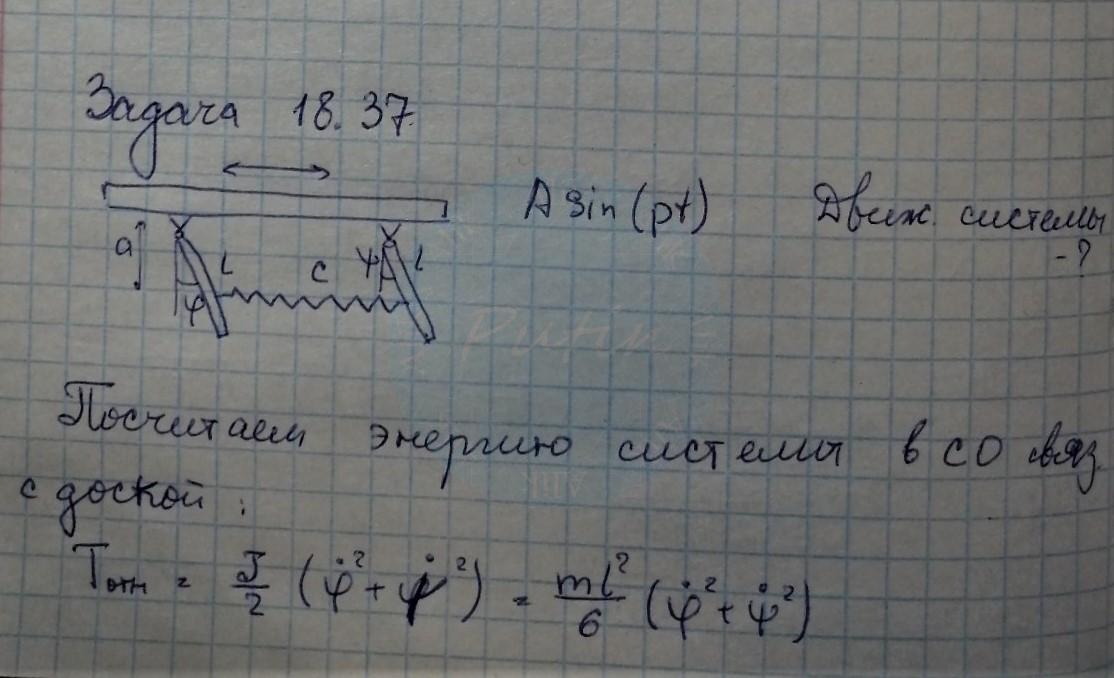 Задача 18.37.
A sin(pt) Движ. системы
-?
a l c ψ l
φ
Посчитаем энергию системы в СО связ
с доской:
Tотн = J/2 (φ̇² + ψ̇²) = ml²/6 (φ̇² + ψ̇²)